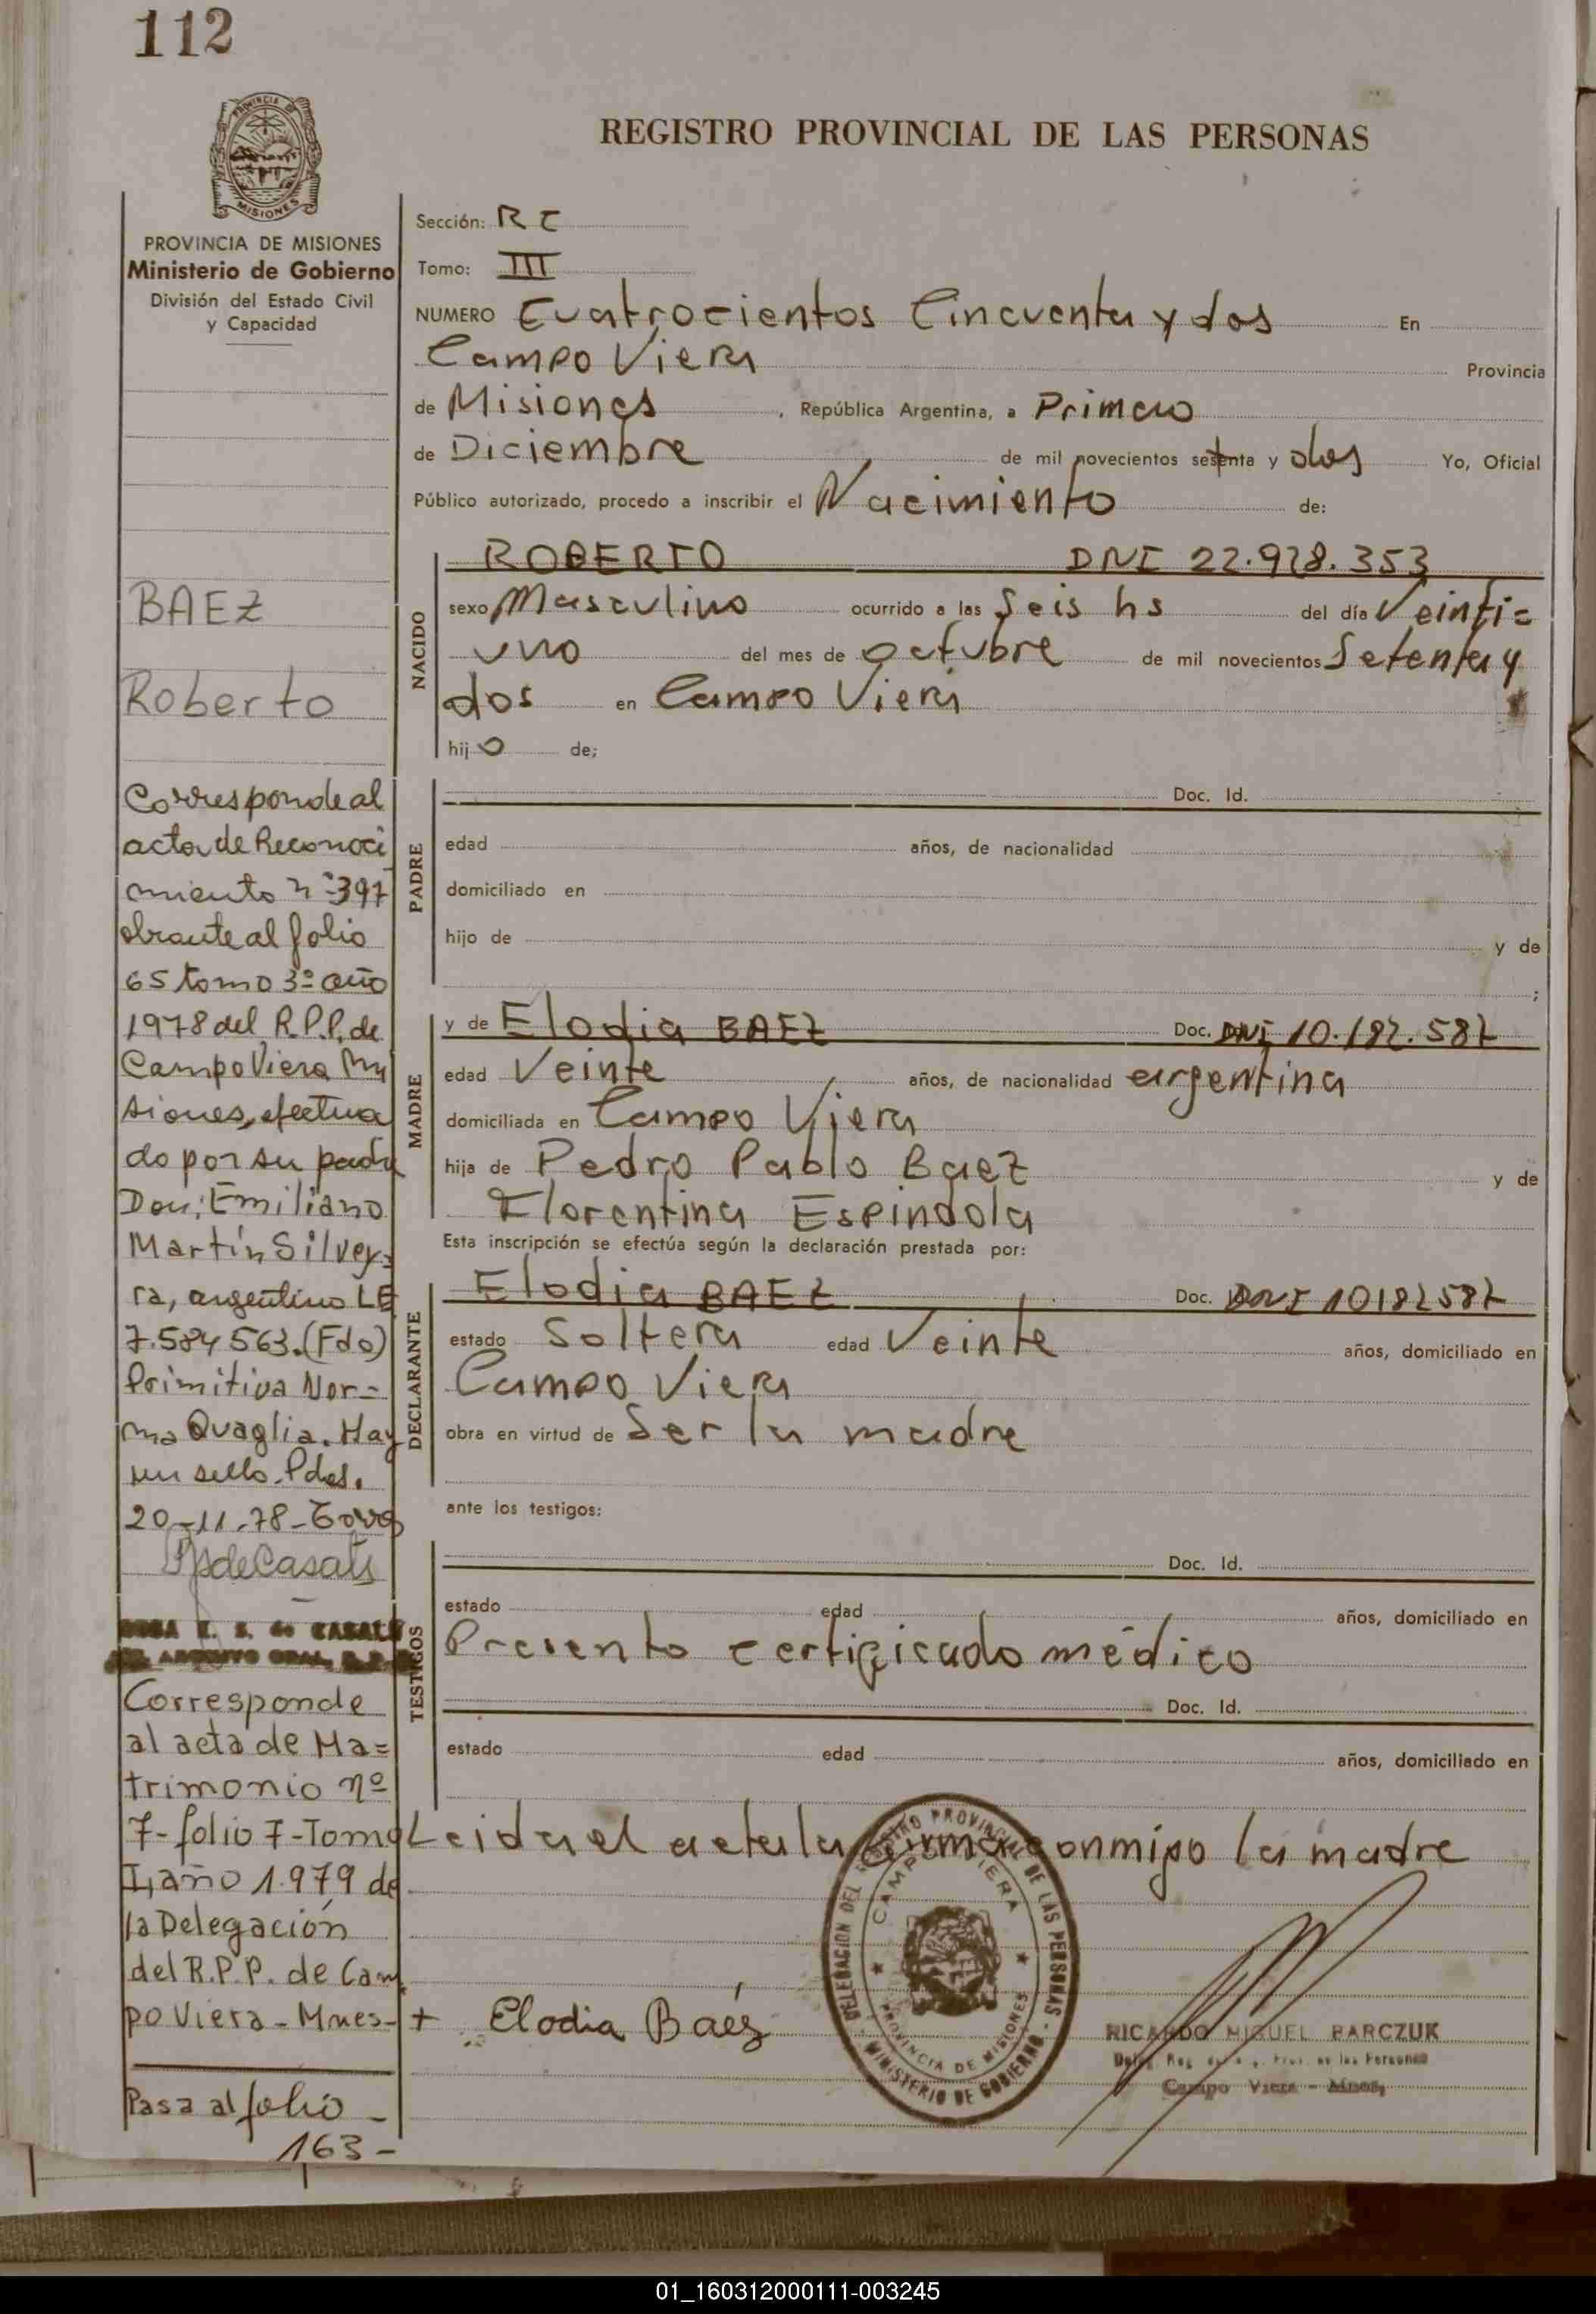 112
REGISTRO PROVINCIAL DE LAS PERSONAS
PROVINCIA DE
MISIONES
PROVINCIA DE MISIONES
Ministerio de Gobierno
División del Estado Civil
y Capacidad
BAEZ
Roberto
Corresponde al
acta de Reconoci
miento nº 397
obrante al folio
65 tomo 3º año
1978 del R.P.P. de
Campo Viera Mi
siones, efectua
do por su padre
Don: Emiliano
Martín Silvey=
ra, argentino LE
7.584563.(Fdo)
Primitiva Nor=
ma Quaglia. Hay
un sello. Pdas.
20-11-78-
de Casals
E. S. de CASALS
Corresponde
al acta de Ma=
trimonio nº
7-folio 7-Tomo
I, año 1.979 de
la Delegación
del R.P.P. de Cam
po Viera - Mnes-
Pasa al folio -
163-
Sección: RC
Tomo: III
NUMERO Cuatrocientos Cincuenta y dos En
Campo Viera Provincia
de Misiones, República Argentina, a Primero
de Diciembre de mil novecientos setenta y dos Yo, Oficial
Público autorizado, procedo a inscribir el Nacimiento de:
NACIDO
ROBERTO DNI 22.928.353
sexo Masculino ocurrido a las Seis hs del día Veinti=
uno del mes de octubre de mil novecientos Setenta y
dos en Campo Viera
hijo de;
PADRE
Doc. Id.
edad años, de nacionalidad
domiciliado en
hijo de y de
;
MADRE
y de Elodia BAEZ Doc. DNI 10.182.582
edad Veinte años, de nacionalidad argentina
domiciliada en Campo Viera
hija de Pedro Pablo Baez y de
Florentina Espindola
Esta inscripción se efectúa según la declaración prestada por:
DECLARANTE
Elodia BAEZ Doc. DNI 10182582
estado Soltera edad Veinte años, domiciliado en
Campo Viera
obra en virtud de Ser la madre
ante los testigos:
TESTIGOS
Doc. Id.
estado edad años, domiciliado en
Presento certificado médico
Doc. Id.
estado edad años, domiciliado en
Leida el acta la firma conmigo la madre
DELEGACION DEL REGISTRO PROVINCIAL DE LAS PERSONAS
CAMPO VIERA
PROVINCIA DE MISIONES
MINISTERIO DE GOBIERNO
+ Elodia Baéz
RICARDO MIGUEL BARCZUK
Deleg. Reg. Prov. de las Personas
Campo Viera - Mnes,
01_160312000111-003245